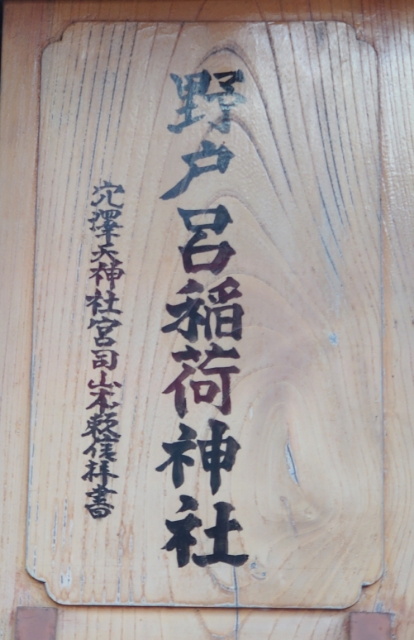 野戸呂稲荷神社
穴澤天神社宮司山本頼信拝書